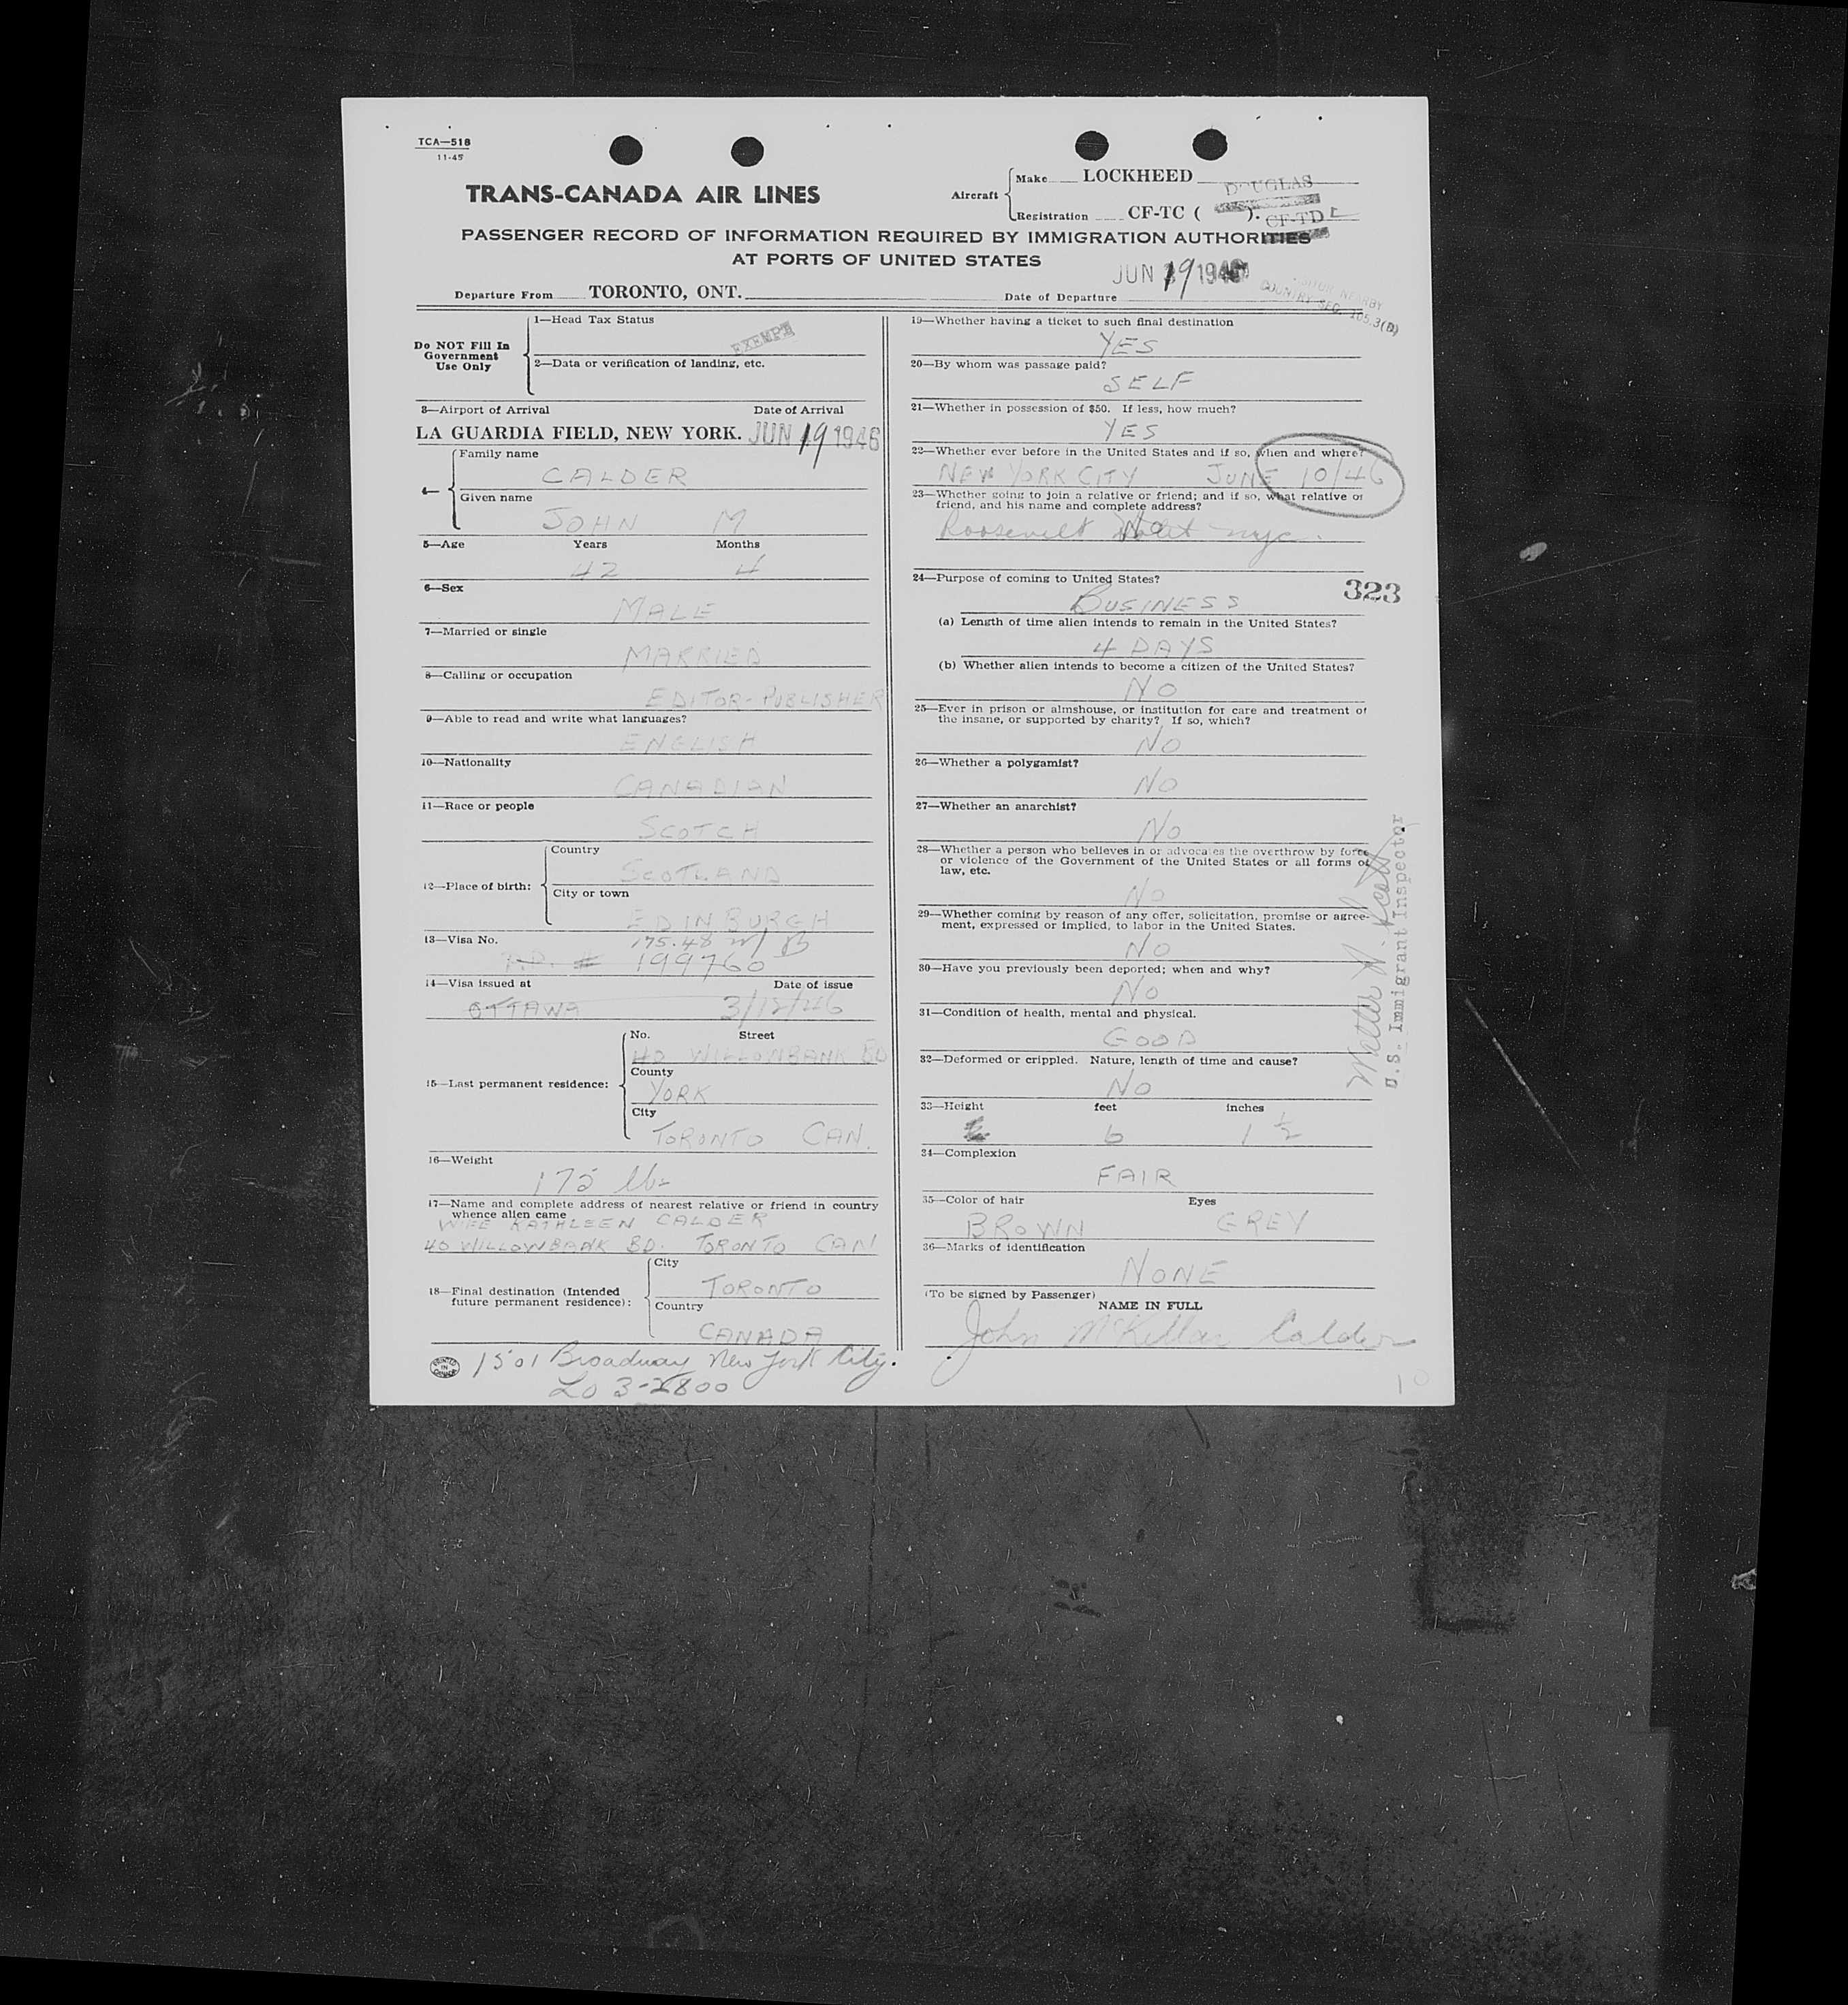 TCA—518
11-45
TRANS-CANADA AIR LINES
Aircraft
Make LOCKHEED DOUGLAS
Registration CF-TC ( ). CF-TD
PASSENGER RECORD OF INFORMATION REQUIRED BY IMMIGRATION AUTHORITIES
AT PORTS OF UNITED STATES
JUN 19 1946
Departure From TORONTO, ONT. Date of Departure
COUNTRY SEC. 165.3(B)
Do NOT Fill In Government Use Only
1—Head Tax Status
EXEMPT
2—Data or verification of landing, etc.
3—Airport of Arrival Date of Arrival
LA GUARDIA FIELD, NEW YORK. JUN 19 1946
4—
Family name
CALDER
Given name
JOHN M
5—Age Years Months
42 4
6—Sex
MALE
7—Married or single
MARRIED
8—Calling or occupation
EDITOR-PUBLISHER
9—Able to read and write what languages?
ENGLISH
10—Nationality
CANADIAN
11—Race or people
SCOTCH
12—Place of birth:
Country
SCOTLAND
City or town
EDINBURGH
175.48 w/
13—Visa No.
# 199760
14—Visa issued at Date of issue
OTTAWA 3/12/46
15—Last permanent residence:
No. Street
40 WILLOWBANK BD
County
YORK
City
TORONTO CAN.
16—Weight
175 lbs
17—Name and complete address of nearest relative or friend in country
whence alien came
WIFE KATHLEEN CALDER
40 WILLOWBANK BD. TORONTO CAN
18—Final destination (Intended
future permanent residence):
City
TORONTO
Country
CANADA
PRINTED IN CANADA
1501 Broadway New York City.
LO 3-2800
19—Whether having a ticket to such final destination
YES
20—By whom was passage paid?
SELF
21—Whether in possession of $50. If less, how much?
YES
22—Whether ever before in the United States and if so, when and where?
NEW YORK CITY JUNE 10/46
23—Whether going to join a relative or friend; and if so, what relative or
friend, and his name and complete address?
No
Roosevelt Hotel nyc.
24—Purpose of coming to United States?
323
BUSINESS
(a) Length of time alien intends to remain in the United States?
4 DAYS
(b) Whether alien intends to become a citizen of the United States?
NO
25—Ever in prison or almshouse, or institution for care and treatment of
the insane, or supported by charity? If so, which?
NO
26—Whether a polygamist?
NO
27—Whether an anarchist?
NO
28—Whether a person who believes in or advocates the overthrow by force
or violence of the Government of the United States or all forms of
law, etc.
NO
29—Whether coming by reason of any offer, solicitation, promise or agree-
ment, expressed or implied, to labor in the United States.
NO
30—Have you previously been deported; when and why?
NO
31—Condition of health, mental and physical.
GOOD
32—Deformed or crippled. Nature, length of time and cause?
NO
33—Height feet inches
6 1 1/2
34—Complexion
FAIR
35—Color of hair Eyes
BROWN GREY
36—Marks of identification
NONE
(To be signed by Passenger)
NAME IN FULL
John McKellar Calder
10
Walter N. Scott
U.S. Immigrant Inspector